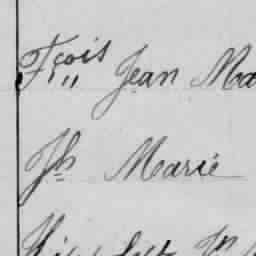 Fçois Jean Ma
Jh Marie